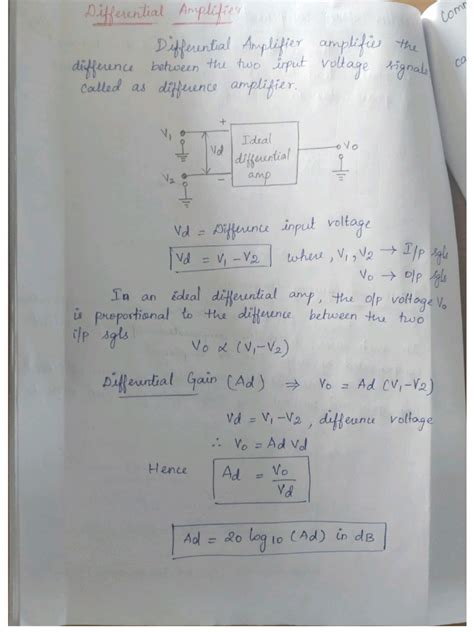 Differential Amplifier
Differential Amplifier amplifies the
difference between the two input voltage signals
called as difference amplifier.
V1
+
Vd
V2
-
Ideal
differential
amp
Vo
Vd = Difference input voltage
Vd = V1 - V2 where, V1, V2 → I/p sgls
Vo → O/p sgls
In an ideal differential amp, the o/p voltage Vo
is proportional to the difference between the two
i/p sgls
Vo ∝ (V1-V2)
Differential Gain (Ad) ⇒ Vo = Ad (V1-V2)
Vd = V1-V2, difference voltage
∴ Vo = Ad Vd
Hence Ad = Vo/Vd
Ad = 20 log10 (Ad) in dB
com
ca